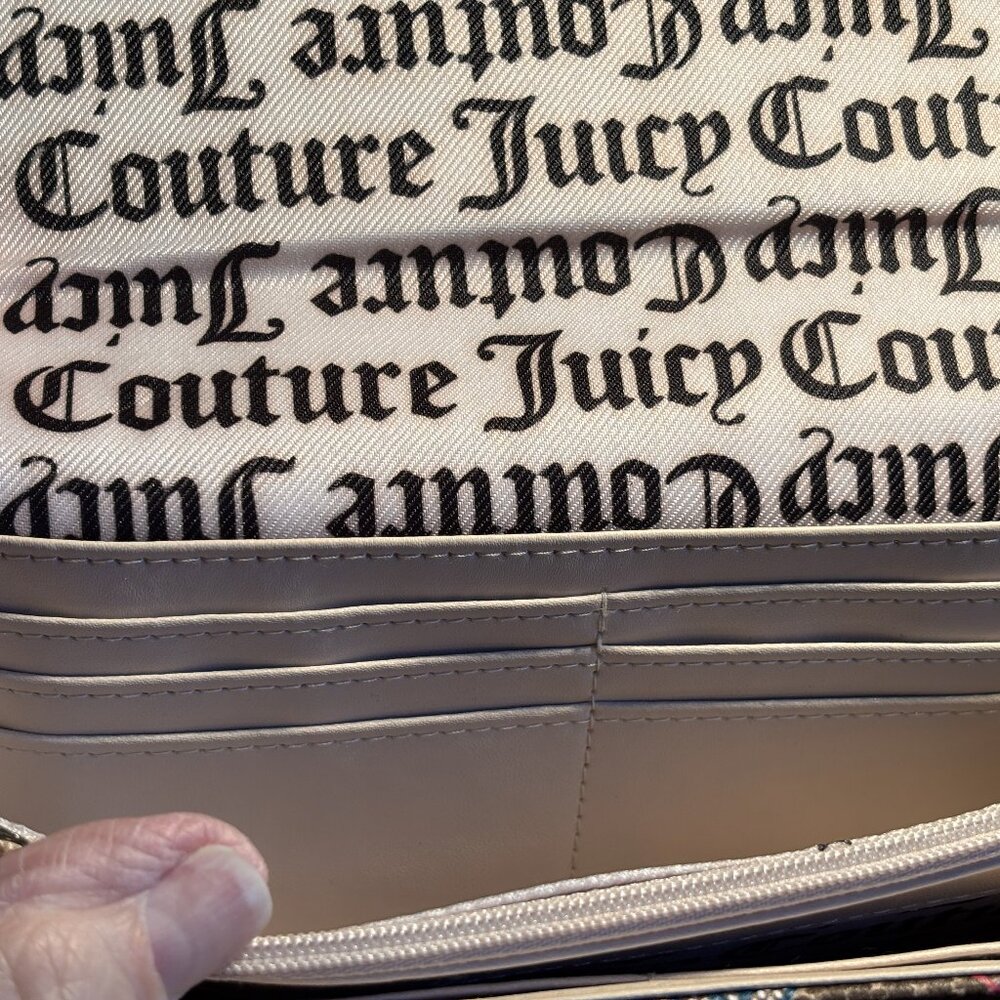 Juicy Couture Juicy
Couture Juicy Cout
Juicy Couture Juicy
Couture Juicy Cou
Juicy Couture Juicy